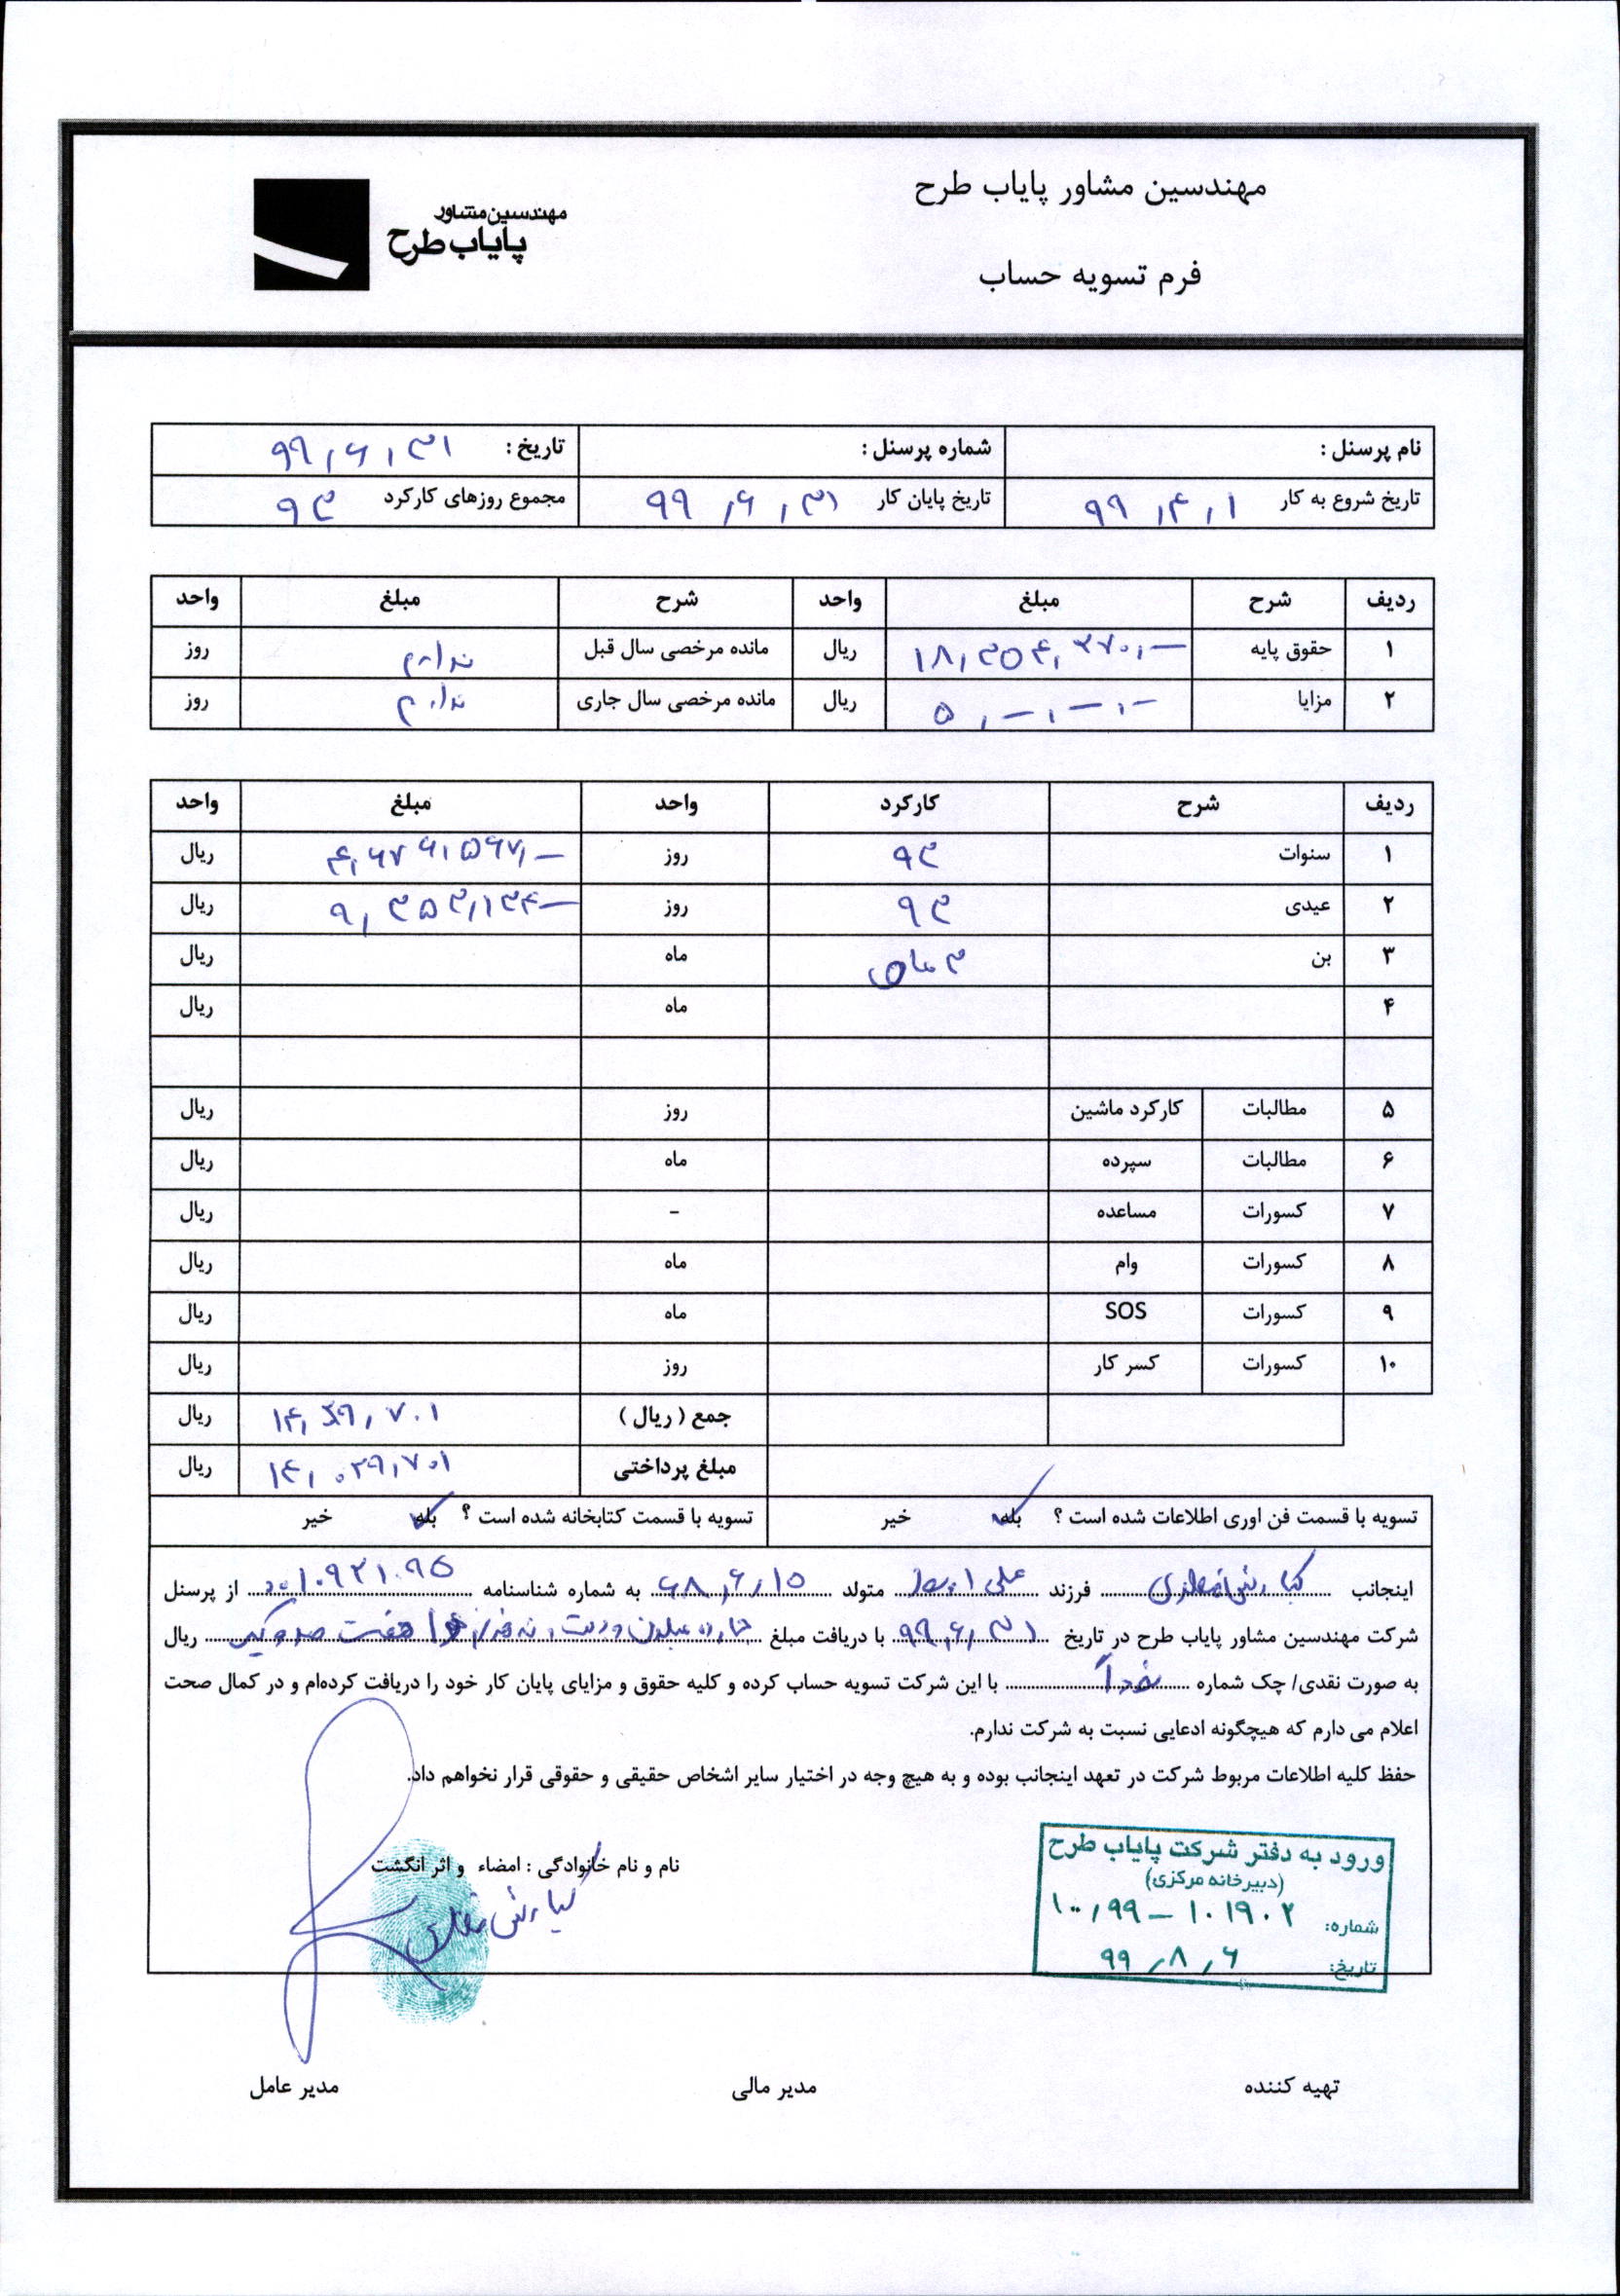 مهندسین مشاور پایاب طرح
مهندسین مشاور
پایاب طرح
فرم تسویه حساب
نام پرسنل : شماره پرسنل : تاریخ : ۹۹,۶,۳۱
تاریخ شروع به کار ۹۹,۴,۱ تاریخ پایان کار ۹۹,۶,۳۱ مجموع روزهای کارکرد ۹۳
ردیف شرح مبلغ واحد شرح مبلغ واحد
۱ حقوق پایه ۱۸,۳۵۴,۲۷۰,- ریال مانده مرخصی سال قبل ندارم روز
۲ مزایا ۵,-,-,- ریال مانده مرخصی سال جاری ندارم روز
ردیف شرح کارکرد واحد مبلغ واحد
۱ سنوات ۹۳ روز ۴,۶۷۶,۵۶۷,- ریال
۲ عیدی ۹۳ روز ۹,۳۵۳,۱۳۴- ریال
۳ بن ۳ ماه ماه ریال
۴ ماه ریال
۵ مطالبات کارکرد ماشین روز ریال
۶ مطالبات سپرده ماه ریال
۷ کسورات مساعده - ریال
۸ کسورات وام ماه ریال
۹ کسورات SOS ماه ریال
۱۰ کسورات کسر کار روز ریال
جمع ( ریال ) ریال
مبلغ پرداختی ۱۴,۰۲۹,۷۰۱ ریال
تسویه با قسمت فن اوری اطلاعات شده است ؟ بله خیر تسویه با قسمت کتابخانه شده است ؟ بله خیر
اینجانب کیارش فرزند علی متولد ۶۸,۶,۱۵ به شماره شناسنامه از پرسنل
شرکت مهندسین مشاور پایاب طرح در تاریخ ۹۹,۶,۳۱ با دریافت مبلغ چهارده میلیون و بیست و نه هزار و هفت صد و یک ریال
به صورت نقدی/ چک شماره نقداً با این شرکت تسویه حساب کرده و کلیه حقوق و مزایای پایان کار خود را دریافت کرده‌ام و در کمال صحت
اعلام می دارم که هیچگونه ادعایی نسبت به شرکت ندارم.
حفظ کلیه اطلاعات مربوط شرکت در تعهد اینجانب بوده و به هیچ وجه در اختیار سایر اشخاص حقیقی و حقوقی قرار نخواهم داد.
نام و نام خانوادگی : امضاء و اثر انگشت
کیارش
ورود به دفتر شرکت پایاب طرح
(دبیرخانه مرکزی)
شماره: ۱۰۰,۹۹ – ۱۰۱۹۰۲
تاریخ: ۹۹,۸,۶
تهیه کننده مدیر مالی مدیر عامل